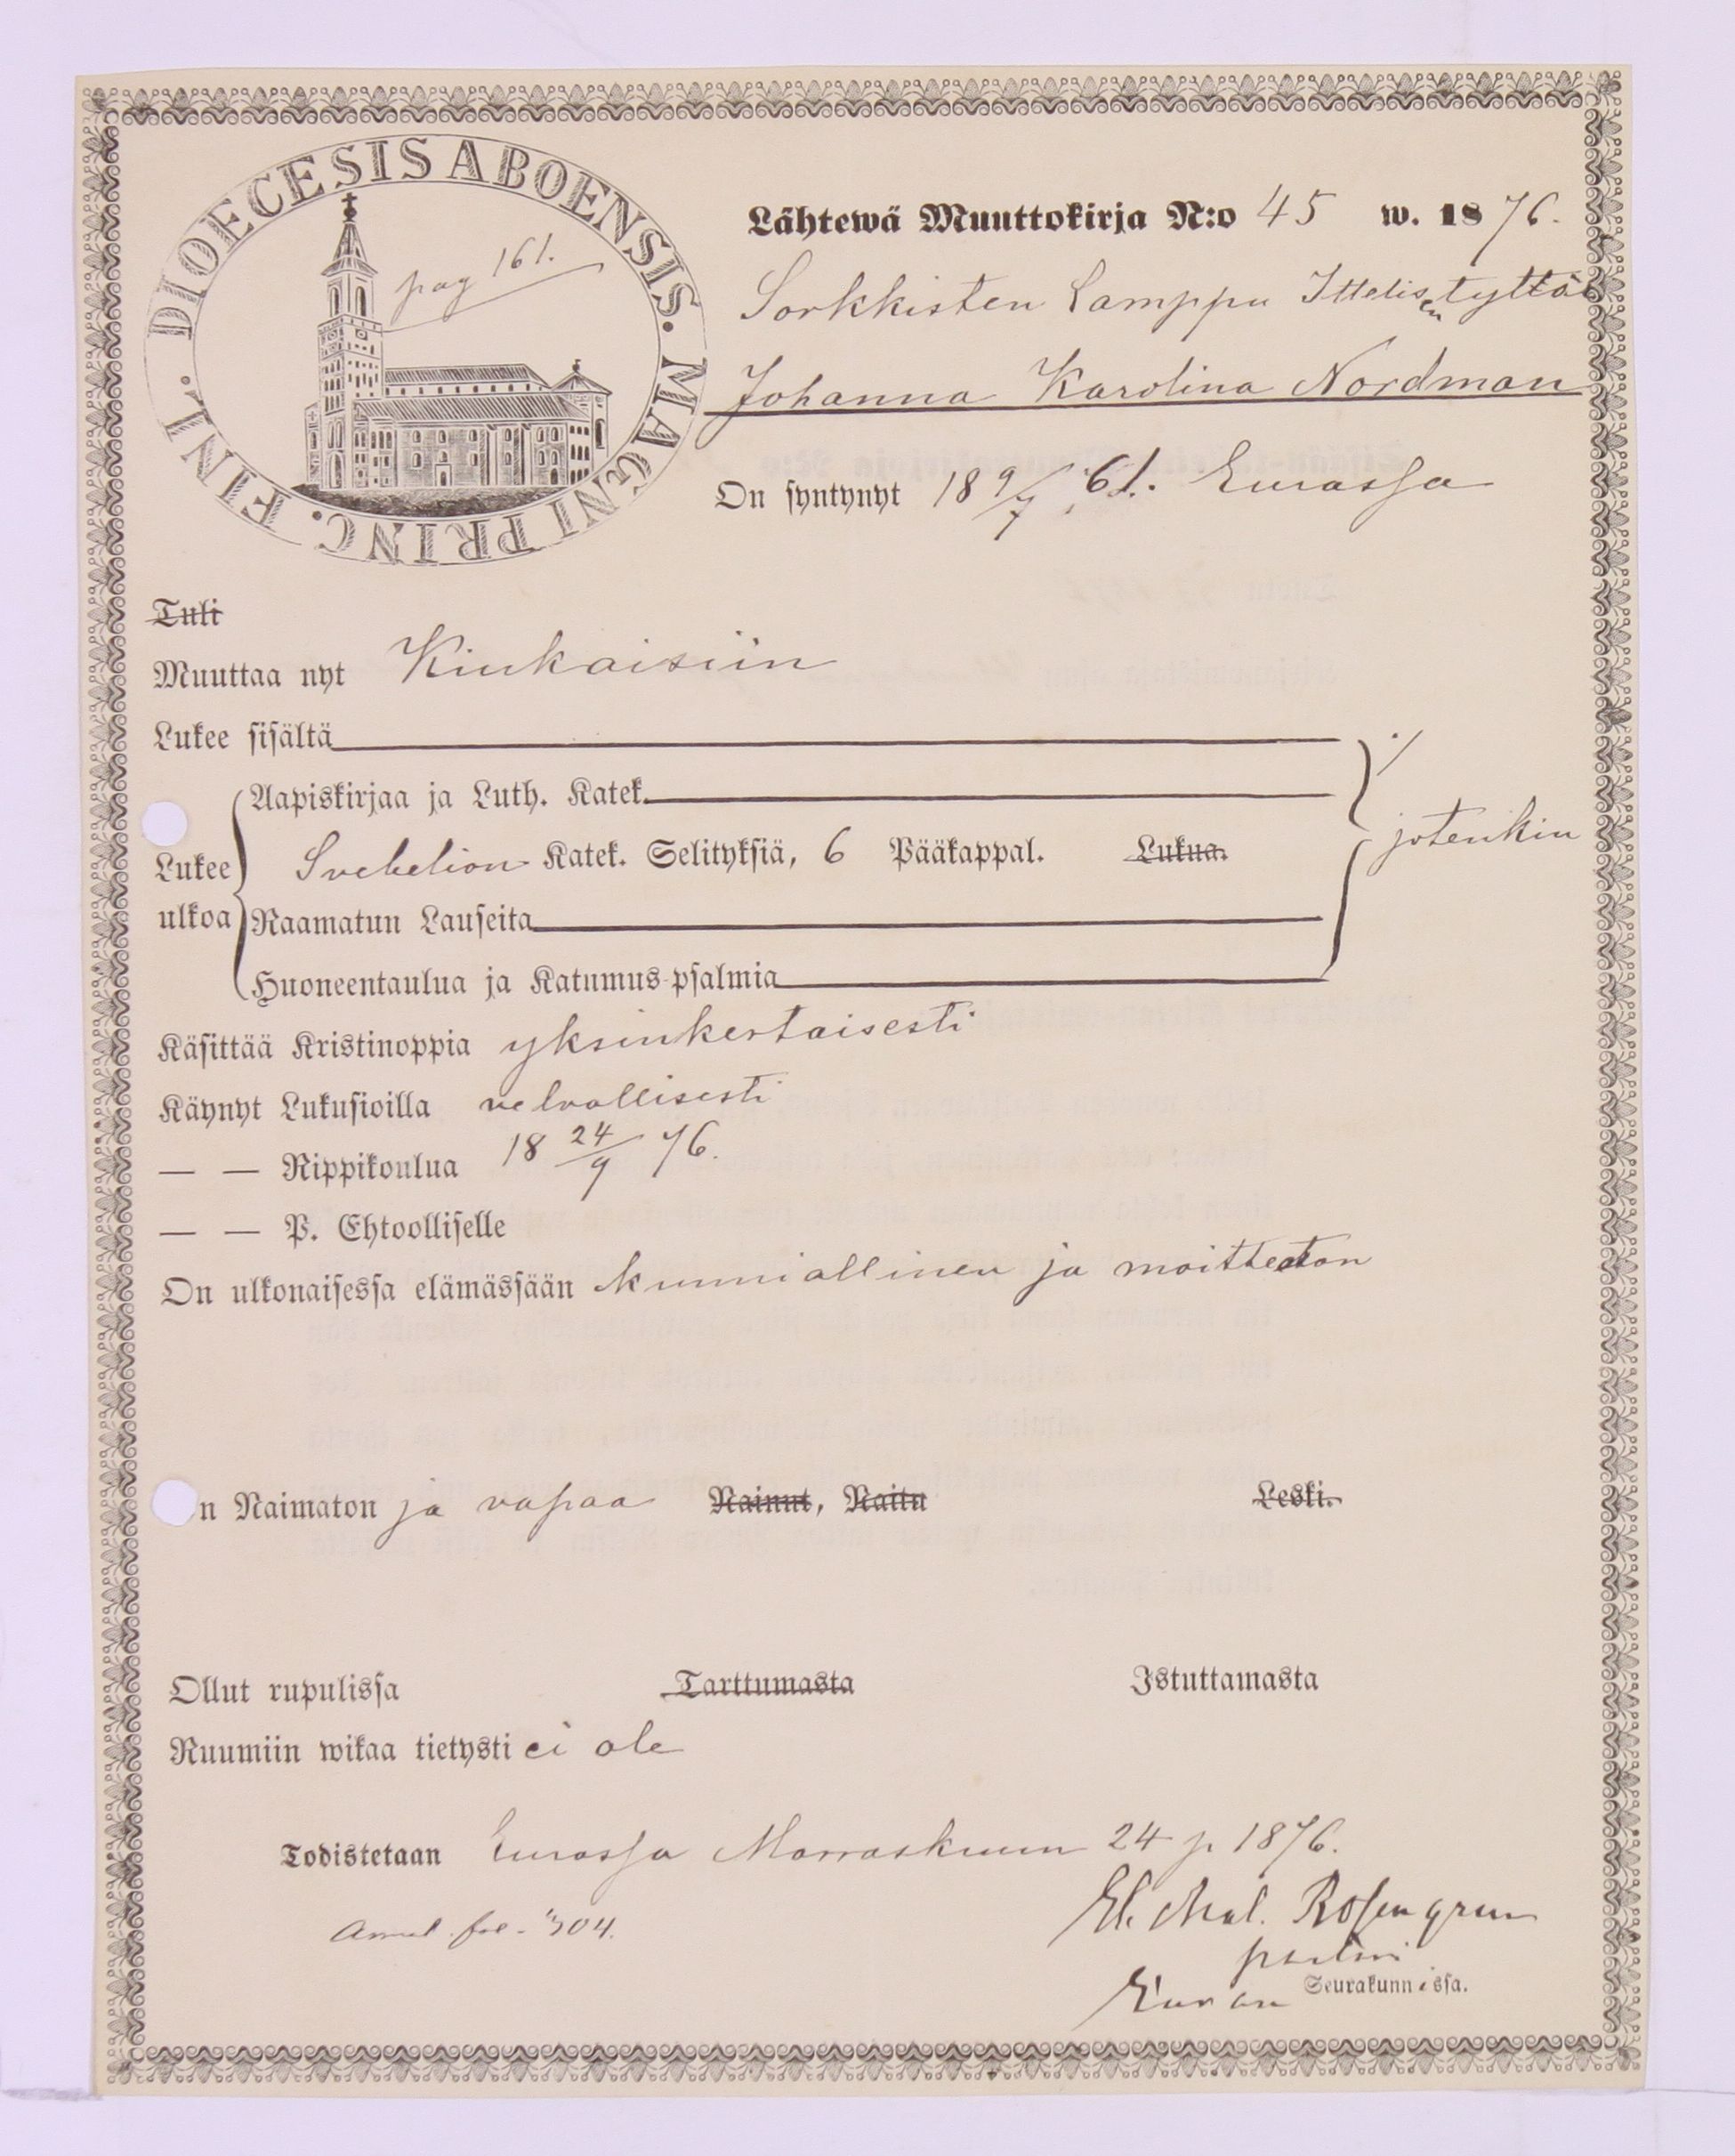 DIOECESIS ABOENSIS. MAGNI PRINC. FINL.
pag 161.
Lähtewä Muuttokirja N:o 45 w. 1876.
Sorkkisten Lamppu Ittelisen tyttö
Johanna Karolina Nordman
On syntynyt 18 9/7 61. Eurassa
Tuli
Muuttaa nyt Kiukaisiin
Lukee sisältä
Aapiskirjaa ja Luth. Katek.
Lukee ulkoa
Svebelion Katek. Selityksiä, 6 Pääkappal. Lukua.
jotenkin
Raamatun Lauseita
Huoneentaulua ja Katumus-psalmia
Käsittää Kristinoppia yksinkertaisesti
Käynyt Lukusioilla velvollisesti
— — Rippikoulua 18 24/9 76.
— — P. Ehtoolliselle
On ulkonaisessa elämässään kunniallinen ja moitteeton
n Naimaton ja vapaa Nainut, Naitu Leski.
Ollut rupulissa Tarttumasta Istuttamasta
Ruumiin wikaa tietysti ei ole
Todistetaan Eurassa Marraskuun 24 p 1876.
fol. 304.
Rosengren
Euran Seurakunnissa.